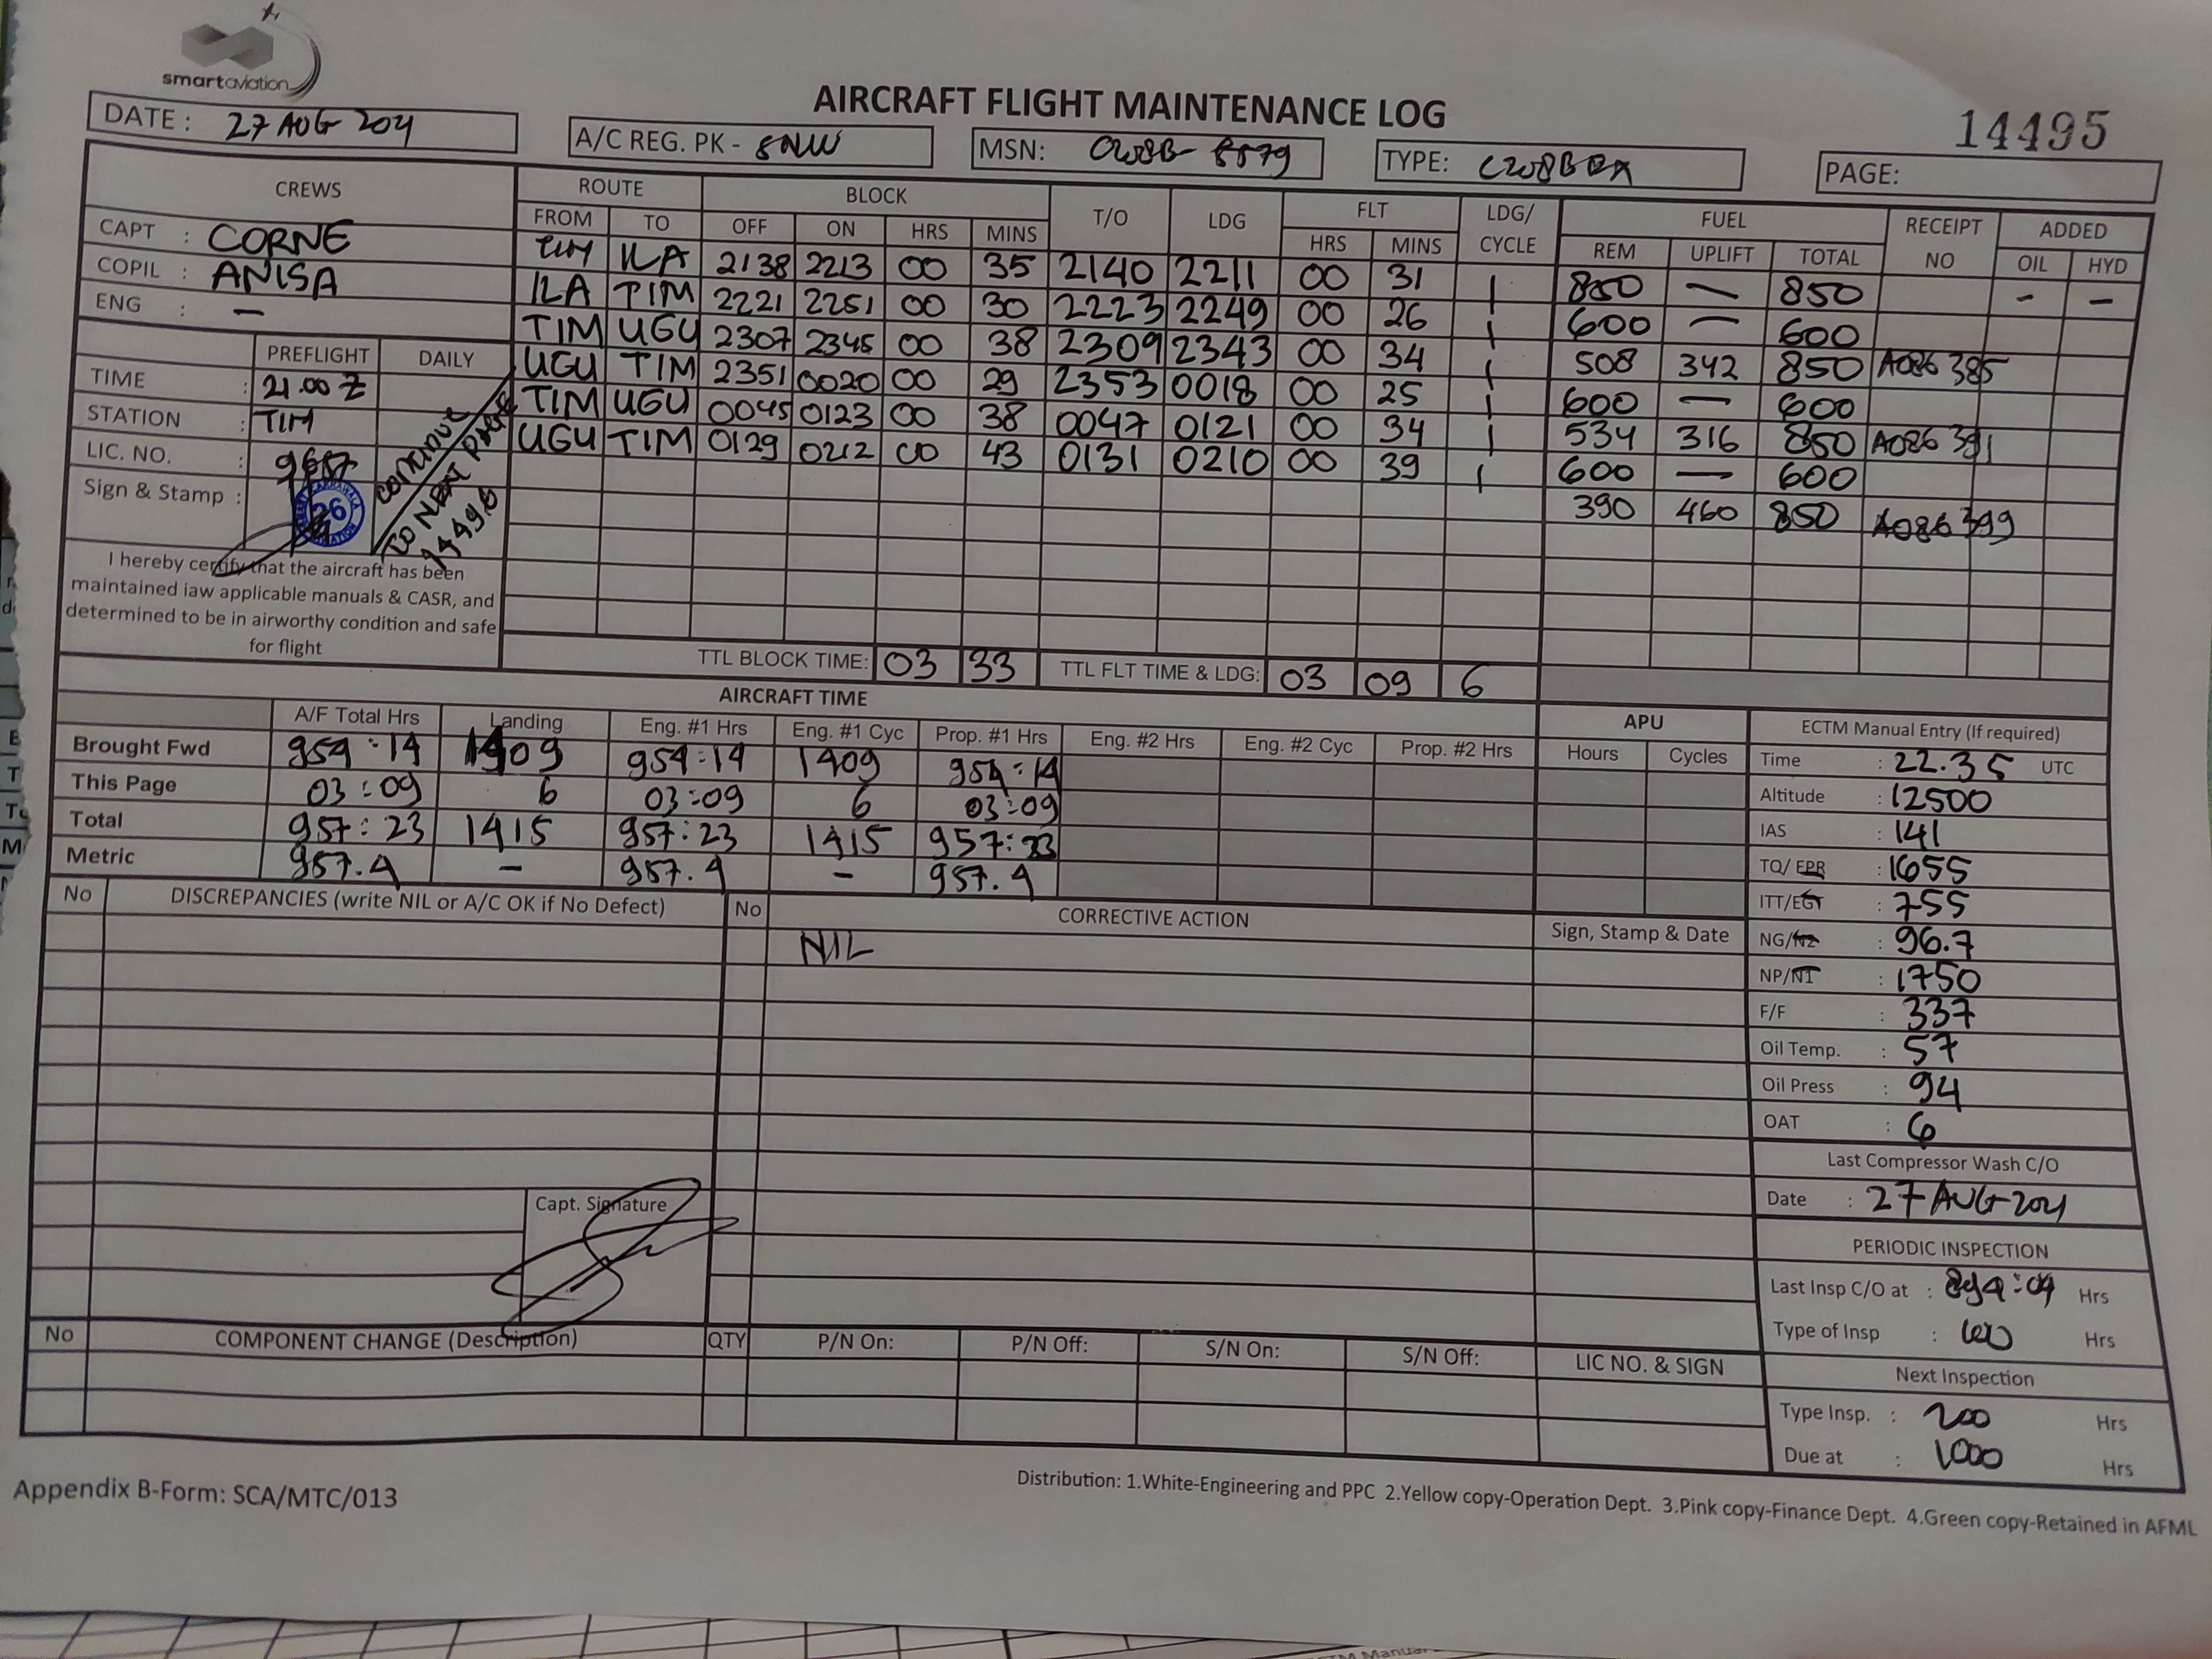 smartaviation
AIRCRAFT FLIGHT MAINTENANCE LOG
14495
DATE : 27 AUG 2021
A/C REG. PK - SNW
MSN: C208B- 5579
TYPE: C208B EX
PAGE:
CREWS ROUTE BLOCK T/O LDG FLT LDG/ CYCLE FUEL RECEIPT NO ADDED
FROM TO OFF ON HRS MINS HRS MINS REM UPLIFT TOTAL OIL HYD
CAPT : CORNE
COPIL : ANISA
ENG : —
TIM ILA 2138 2213 00 35 2140 2211 00 31 1 850 — 850 - -
ILA TIM 2221 2251 00 30 2223 2249 00 26 1 600 — 600
TIM UGU 2307 2345 00 38 2309 2343 00 34 1 508 342 850 A086385
UGU TIM 2351 0020 00 29 2353 0018 00 25 1 600 — 600
TIM UGU 0045 0123 00 38 0047 0121 00 34 1 534 316 850 A086391
UGU TIM 0129 0212 00 43 0131 0210 00 39 1 600 — 600
390 460 850 A086399
PREFLIGHT DAILY
TIME : 21.00 Z
STATION : TIM
LIC. NO. : 9657
Sign & Stamp :
26
CONTINUE
TO NEXT PAGE
14496
I hereby certify that the aircraft has been
maintained iaw applicable manuals & CASR, and
determined to be in airworthy condition and safe
for flight
TTL BLOCK TIME: 03 33 TTL FLT TIME & LDG: 03 09 6
AIRCRAFT TIME
A/F Total Hrs Landing Eng. #1 Hrs Eng. #1 Cyc Prop. #1 Hrs Eng. #2 Hrs Eng. #2 Cyc Prop. #2 Hrs
Brought Fwd 954:14 1409 954:14 1409 954:14
This Page 03:09 6 03:09 6 03:09
Total 957:23 1415 957:23 1415 957:23
Metric 957.4 - 957.4 - 957.4
APU
Hours Cycles
ECTM Manual Entry (If required)
Time : 22.35 UTC
Altitude : 12500
IAS : 141
TQ/ EPR : 1655
ITT/EGT : 755
NG/N2 : 96.7
NP/N1 : 1750
F/F : 337
Oil Temp. : 57
Oil Press : 94
OAT : 6
Last Compressor Wash C/O
Date : 27 AUG 2021
PERIODIC INSPECTION
Last Insp C/O at : 894:04 Hrs
Type of Insp : 100 Hrs
Next Inspection
Type Insp. : 200 Hrs
Due at : 1000 Hrs
No DISCREPANCIES (write NIL or A/C OK if No Defect) No CORRECTIVE ACTION Sign, Stamp & Date
NIL
Capt. Signature
No COMPONENT CHANGE (Description) QTY P/N On: P/N Off: S/N On: S/N Off: LIC NO. & SIGN
Appendix B-Form: SCA/MTC/013
Distribution: 1.White-Engineering and PPC 2.Yellow copy-Operation Dept. 3.Pink copy-Finance Dept. 4.Green copy-Retained in AFML